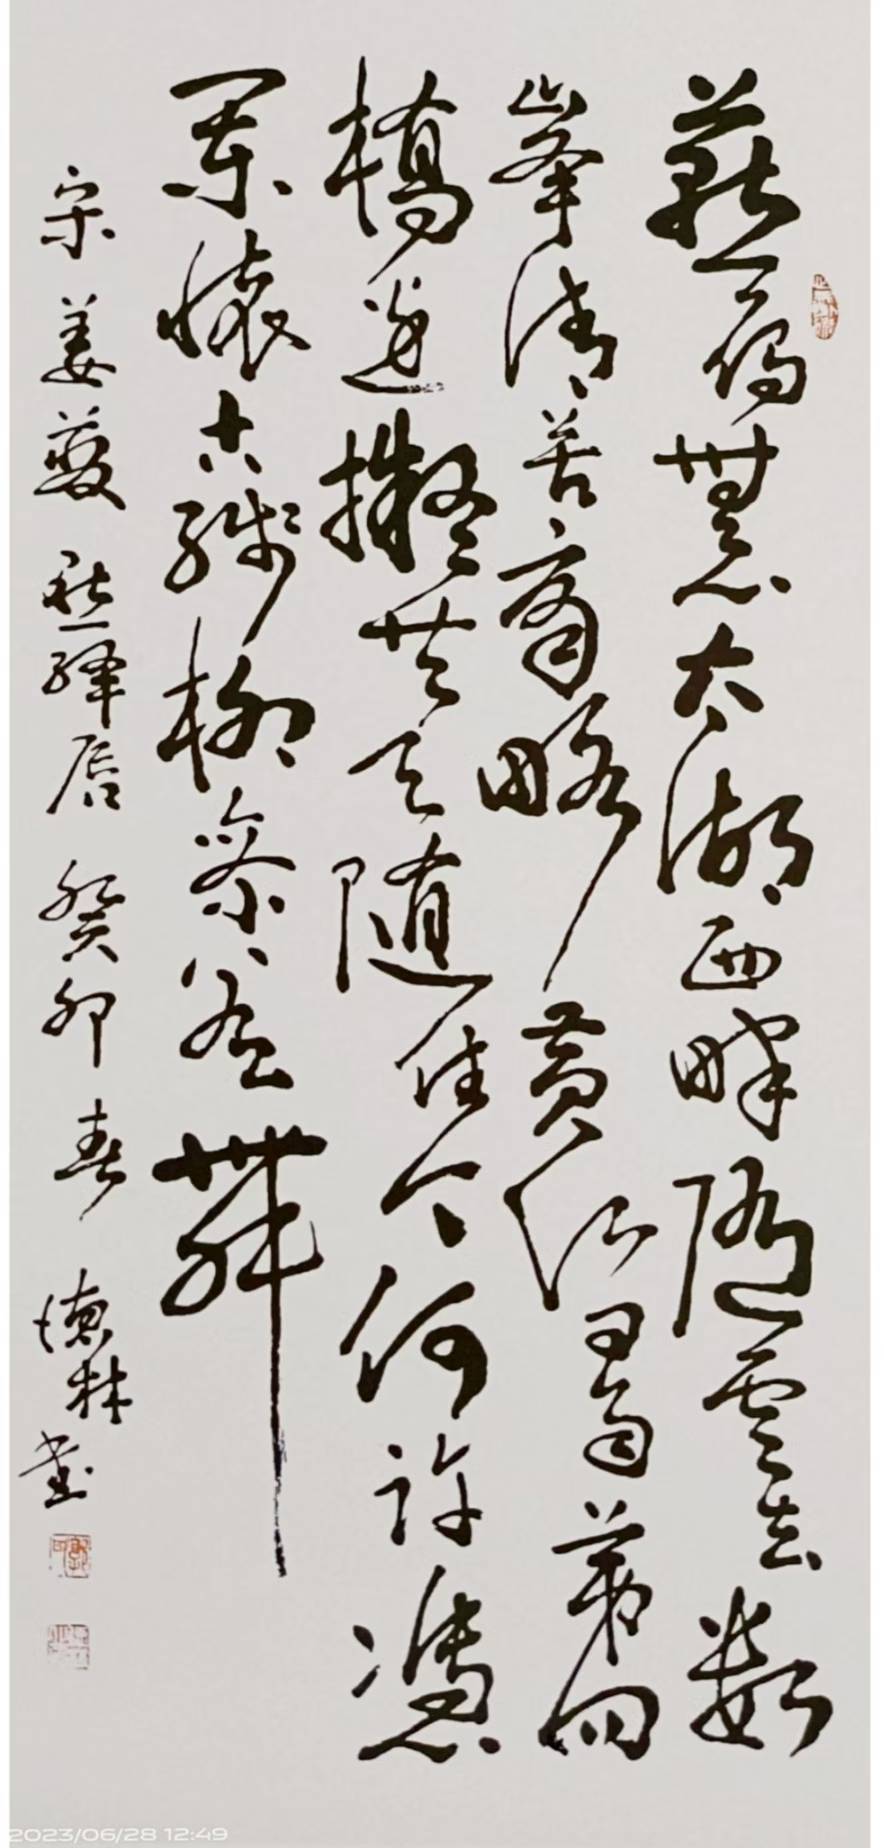 燕雁無心太湖西畔隨雲去數
峯清苦商略黃昏雨第四
橋邊擬共天随住今何許憑
闌懷古殘柳參差舞
宋姜夔點絳唇癸卯春德林書
2023/06/28 12:49